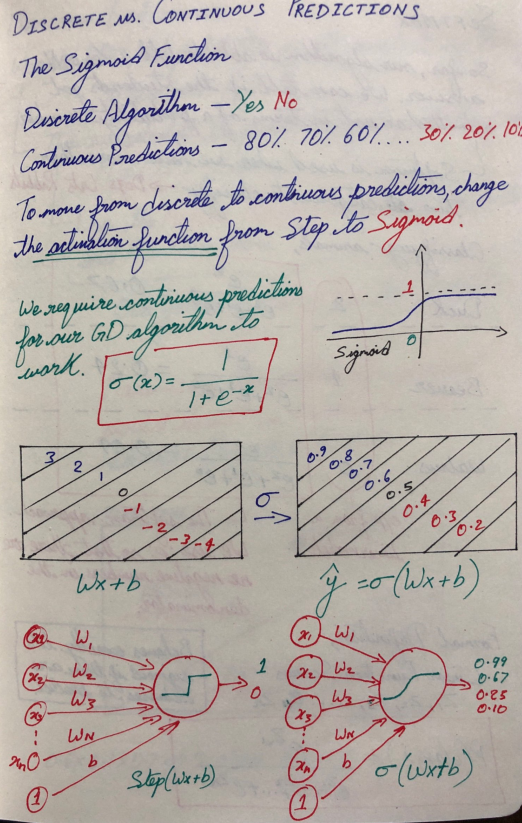 DISCRETE vs. CONTINUOUS PREDICTIONS
The Sigmoid Function
Discrete Algorithm – Yes No
Continuous Predictions – 80% 70% 60% .... 30% 20% 10%
To move from discrete to continuous predictions, change
the activation function from Step to Sigmoid.
We require continuous predictions
for our GD algorithm to
work.
σ(x) = 1 / (1 + e^-x)
1
0
Sigmoid
3 2 1 0 -1 -2 -3 -4
σ
⇒
0.9 0.8 0.7 0.6 0.5 0.4 0.3 0.2
Wx+b
ŷ = σ(Wx+b)
x1 W1
x2 W2
x3 W3
xn WN
1 b
1
0
Step(Wx+b)
x1 W1
x2 W2
x3 W3
xn WN
1 b
0.99
0.67
0.25
0.10
σ(Wx+b)